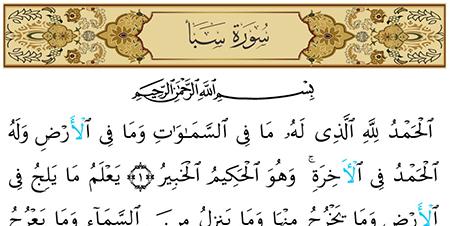 سُورَةُ سَبَأ
بِسْمِ اللَّهِ الرَّحْمَٰنِ الرَّحِيمِ
الْحَمْدُ لِلَّهِ الَّذِى لَهُۥ مَا فِى السَّمَـٰوَٰتِ وَمَا فِى الْأَرْضِ وَلَهُ
الْحَمْدُ فِى الْـَٔاخِرَةِ ۚ وَهُوَ الْحَكِيمُ الْخَبِيرُ ﴿١﴾ يَعْلَمُ مَا يَلِجُ فِى
الْأَرْضِ وَمَا يَخْرُجُ مِنْهَا وَمَا يَنزِلُ مِنَ السَّمَآءِ وَمَا يَعْرُجُ